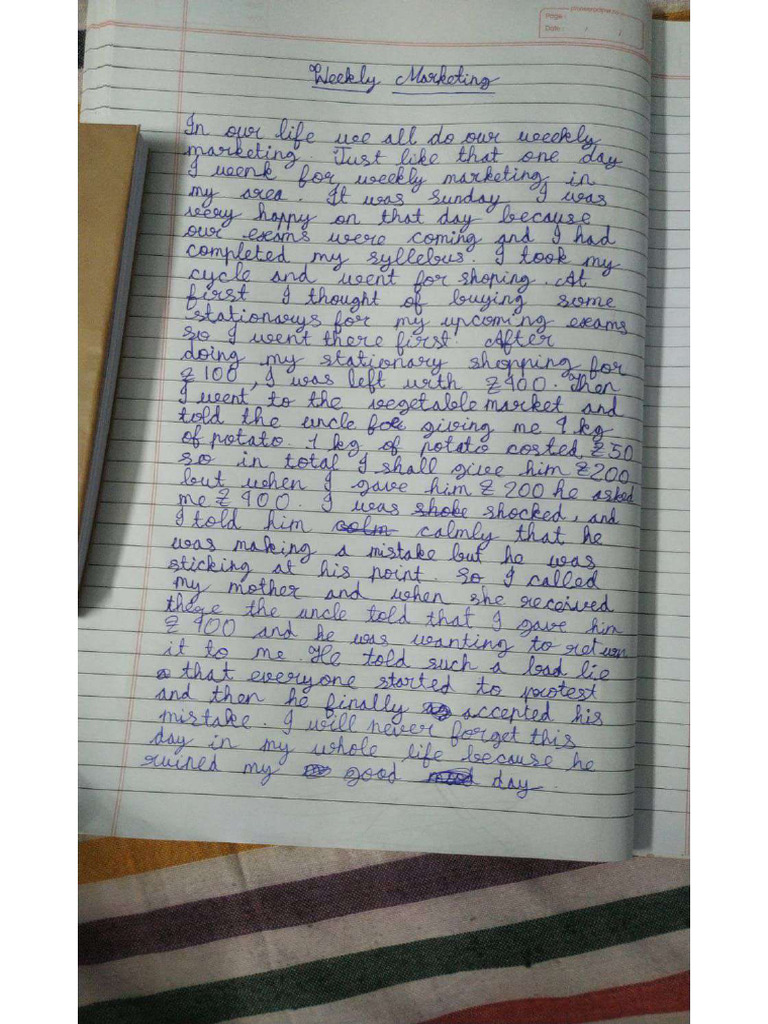 Page:
Date: / /
Weekly Marketing
In our life we all do our weekly
marketing. Just like that one day
I wenk for weekly marketing in
my area. It was sunday I was
very happy on that day because
our exams were coming and I had
completed my syllebus. I took my
cycle and went for shoping. At
first I thought of buying some
stationarys for my upcoming exams
so I went there first. After
doing my stationary shopping for
₹100, I was left with ₹400. Then
I went to the vegetable market and
told the uncle for giving me 4 kg
of potato. 1 kg of potato costed ₹50
so in total I shall give him ₹200
but when I gave him ₹200 he asked
me ₹400. I was shoke shocked, and
I told him calm calmly that he
was making a mistake but he was
sticking at his point. So I called
my mother and when she received
there the uncle told that I gave him
₹400 and he was wanting to return
it to me. He told such a bad lie
that everyone started to protest
and then he finally accepted his
mistake. I will never forget this
day in my whole life because he
ruined my good mood day.